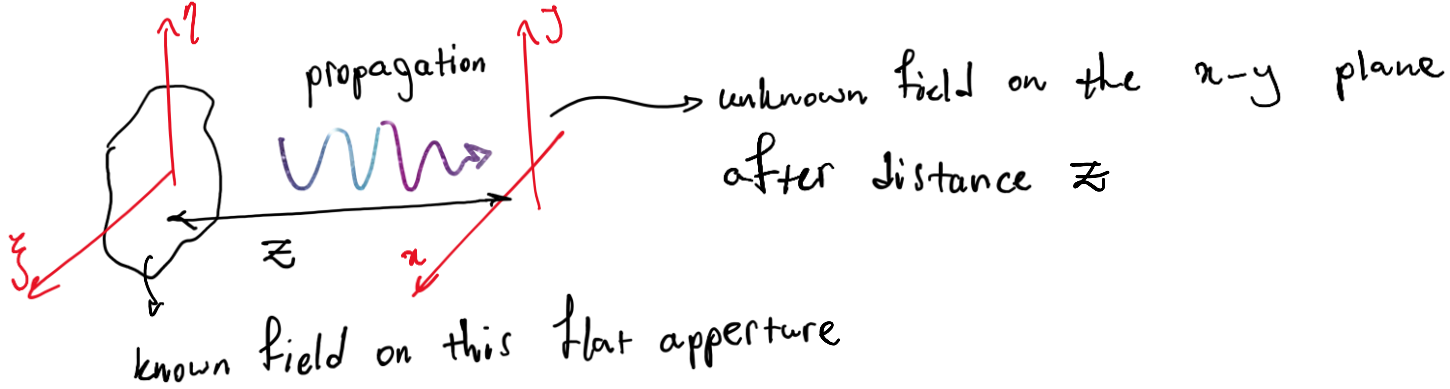 η
y
propagation
unknown field on the x-y plane
after distance z
ξ
z
x
known field on this flat apperture